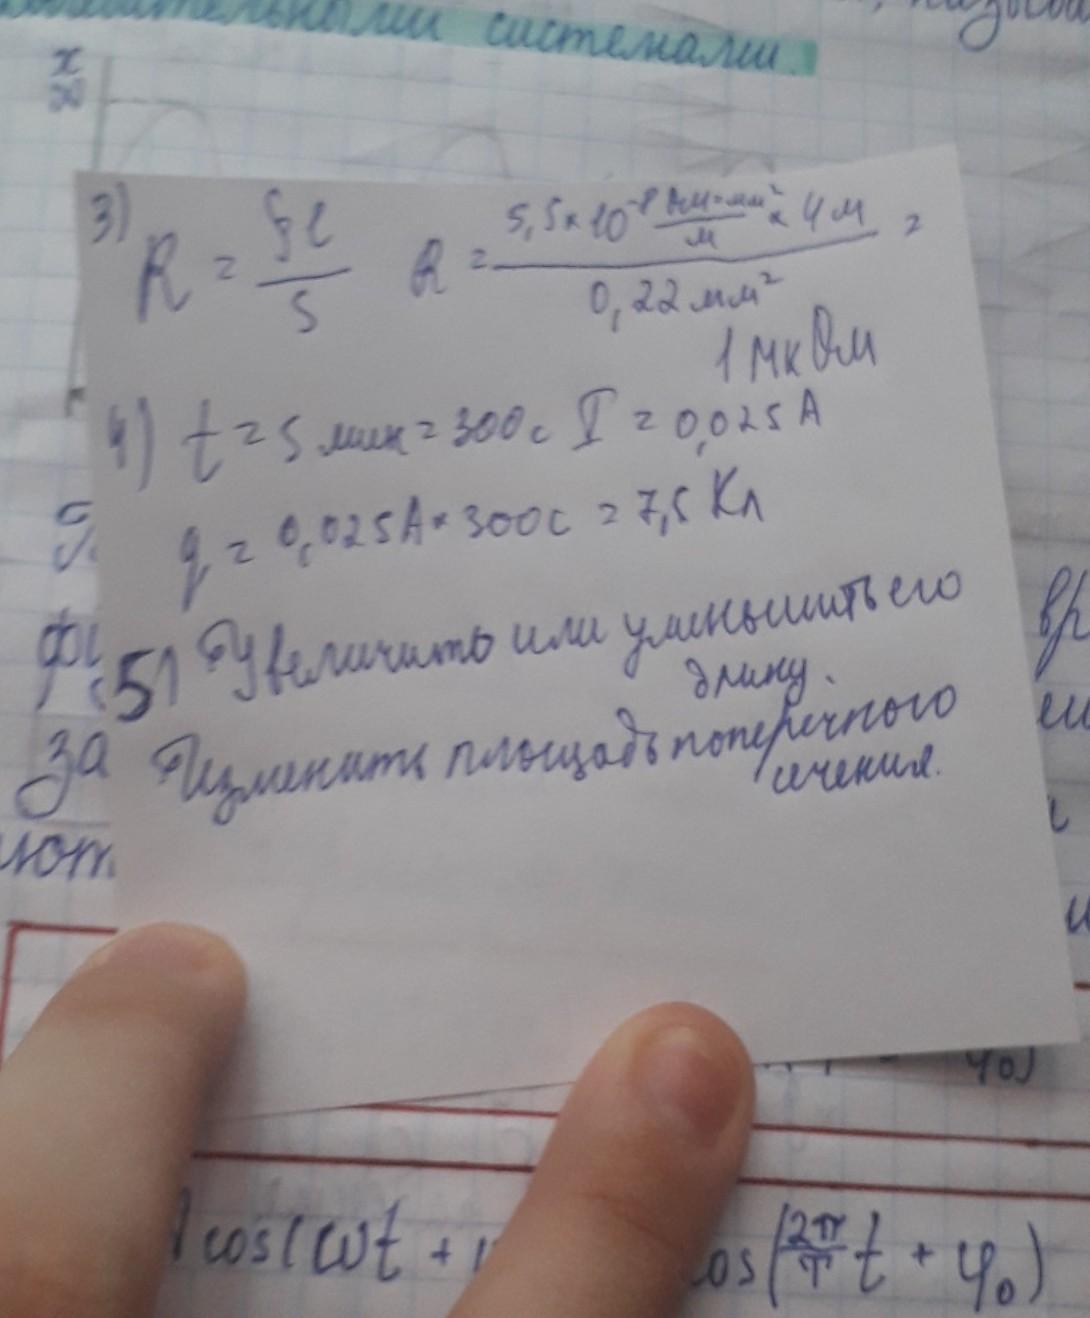 системами.
x
3) R = ρl / S R = 5,5×10⁻⁸ Ом×мм² / м × 4м / 0,22 мм² =
1 мкОм
4) t = 5 мин = 300с I = 0,025 А
q = 0,025А × 300с = 7,5 Кл
5) Увеличить или уменьшить его
длину.
Изменить площадь поперечного
сечения.
за
φ₀)
cos(ωt +
cos(2π/T t + φ₀)